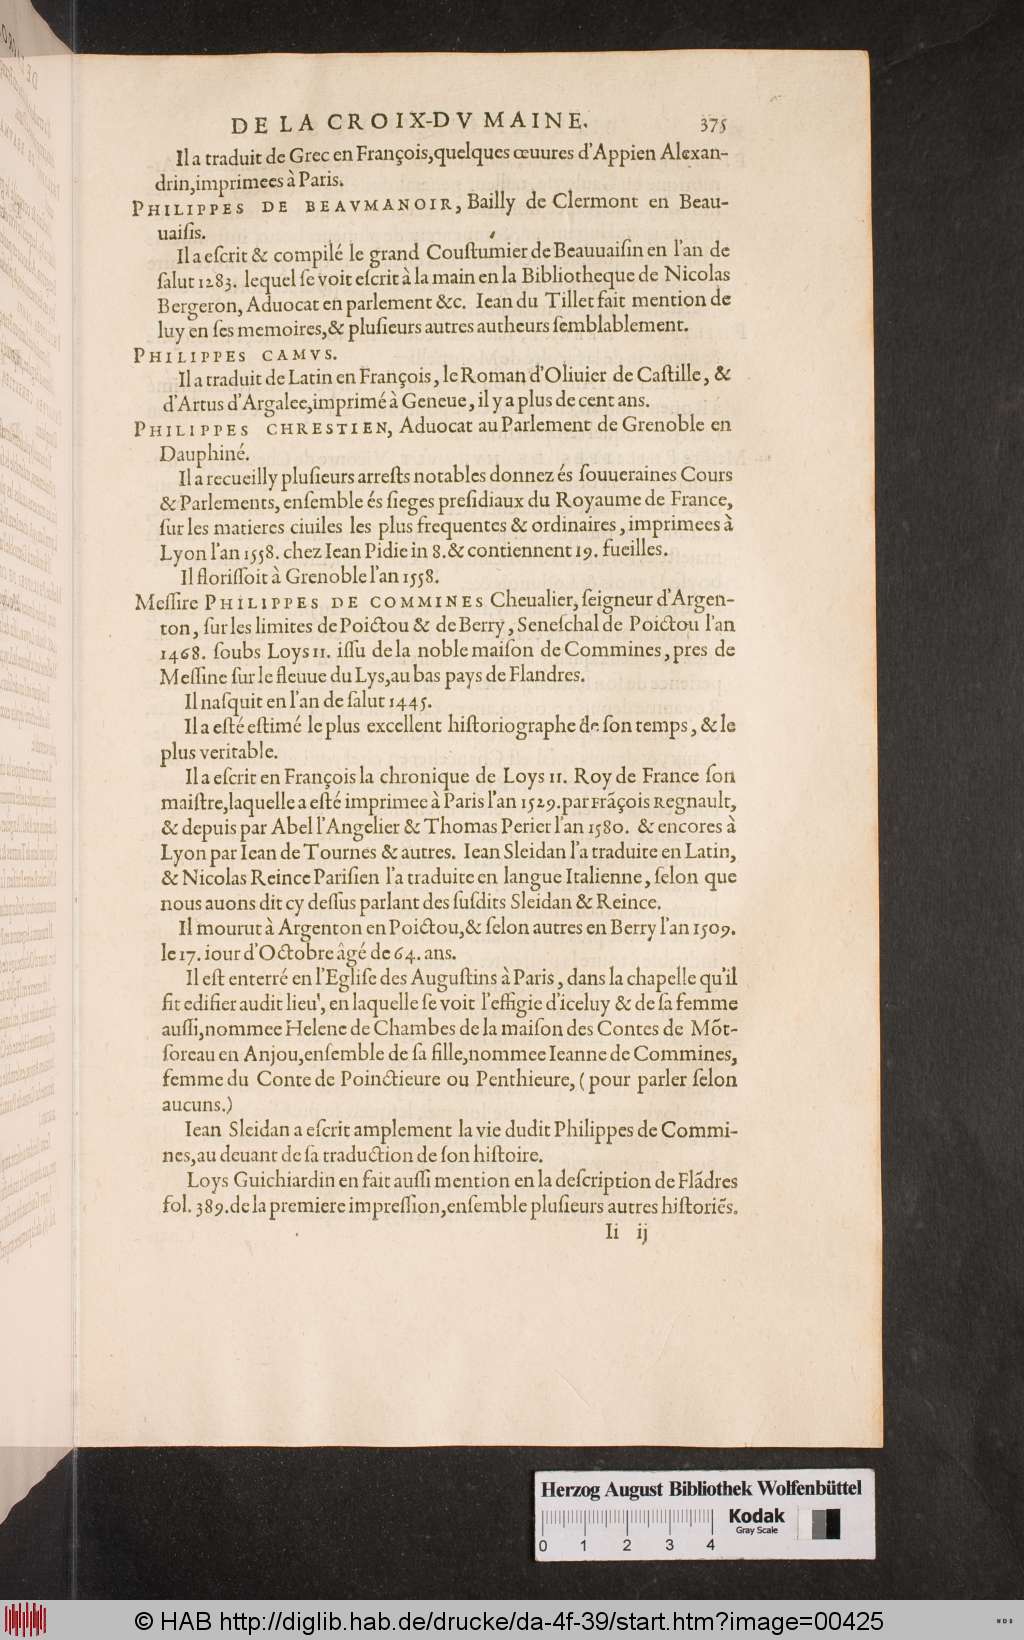 DE LA CROIX-DV MAINE. 375
Il a traduit de Grec en François, quelques œuures d'Appien Alexan-
drin, imprimees à Paris.
PHILIPPES DE BEAVMANOIR, Bailly de Clermont en Beau-
uaiſis.
Il a eſcrit & compilé le grand Couſtumier de Beauuaiſin en l'an de
ſalut 1283. lequel ſe voit eſcrit à la main en la Bibliotheque de Nicolas
Bergeron, Aduocat en parlement &c. Iean du Tillet fait mention de
luy en ſes memoires, & pluſieurs autres autheurs ſemblablement.
PHILIPPES CAMVS.
Il a traduit de Latin en François, le Roman d'Oliuier de Caſtille, &
d'Artus d'Argalee, imprimé à Geneue, il y a plus de cent ans.
PHILIPPES CHRESTIEN, Aduocat au Parlement de Grenoble en
Dauphiné.
Il a recueilly pluſieurs arreſts notables donnez és ſouueraines Cours
& Parlements, enſemble és ſieges preſidiaux du Royaume de France,
ſur les matieres ciuiles les plus frequentes & ordinaires, imprimees à
Lyon l'an 1558. chez Iean Pidie in 8. & contiennent 19. fueilles.
Il floriſſoit à Grenoble l'an 1558.
Meſſire PHILIPPES DE COMMINES Cheualier, ſeigneur d'Argen-
ton, ſur les limites de Poictou & de Berry, Seneſchal de Poictou l'an
1468. ſoubs Loys 11. iſſu de la noble maiſon de Commines, pres de
Meſſine ſur le fleuue du Lys, au bas pays de Flandres.
Il naſquit en l'an de ſalut 1445.
Il a eſté eſtimé le plus excellent hiſtoriographe de ſon temps, & le
plus veritable.
Il a eſcrit en François la chronique de Loys 11. Roy de France ſon
maiſtre, laquelle a eſté imprimee à Paris l'an 1529. par Frãçois Regnault,
& depuis par Abel l'Angelier & Thomas Perier l'an 1580. & encores à
Lyon par Iean de Tournes & autres. Iean Sleidan l'a traduite en Latin,
& Nicolas Reince Pariſien l'a traduite en langue Italienne, ſelon que
nous auons dit cy deſſus parlant des ſuſdits Sleidan & Reince.
Il mourut à Argenton en Poictou, & ſelon autres en Berry l'an 1509.
le 17. iour d'Octobre âgé de 64. ans.
Il eſt enterré en l'Egliſe des Auguſtins à Paris, dans la chapelle qu'il
fit edifier audit lieu, en laquelle ſe voit l'effigie d'iceluy & de ſa femme
auſſi, nommee Helene de Chambes de la maiſon des Contes de Mõt-
ſoreau en Anjou, enſemble de ſa fille, nommee Ieanne de Commines,
femme du Conte de Poinctieure ou Penthieure, (pour parler ſelon
aucuns.)
Iean Sleidan a eſcrit amplement la vie dudit Philippes de Commi-
nes, au deuant de ſa traduction de ſon hiſtoire.
Loys Guichiardin en fait auſſi mention en la deſcription de Flãdres
fol. 389. de la premiere impreſſion, enſemble pluſieurs autres hiſtoriẽs.
Ii ij
Herzog August Bibliothek Wolfenbüttel
Kodak
Gray Scale
0 1 2 3 4
© HAB http://diglib.hab.de/drucke/da-4f-39/start.htm?image=00425